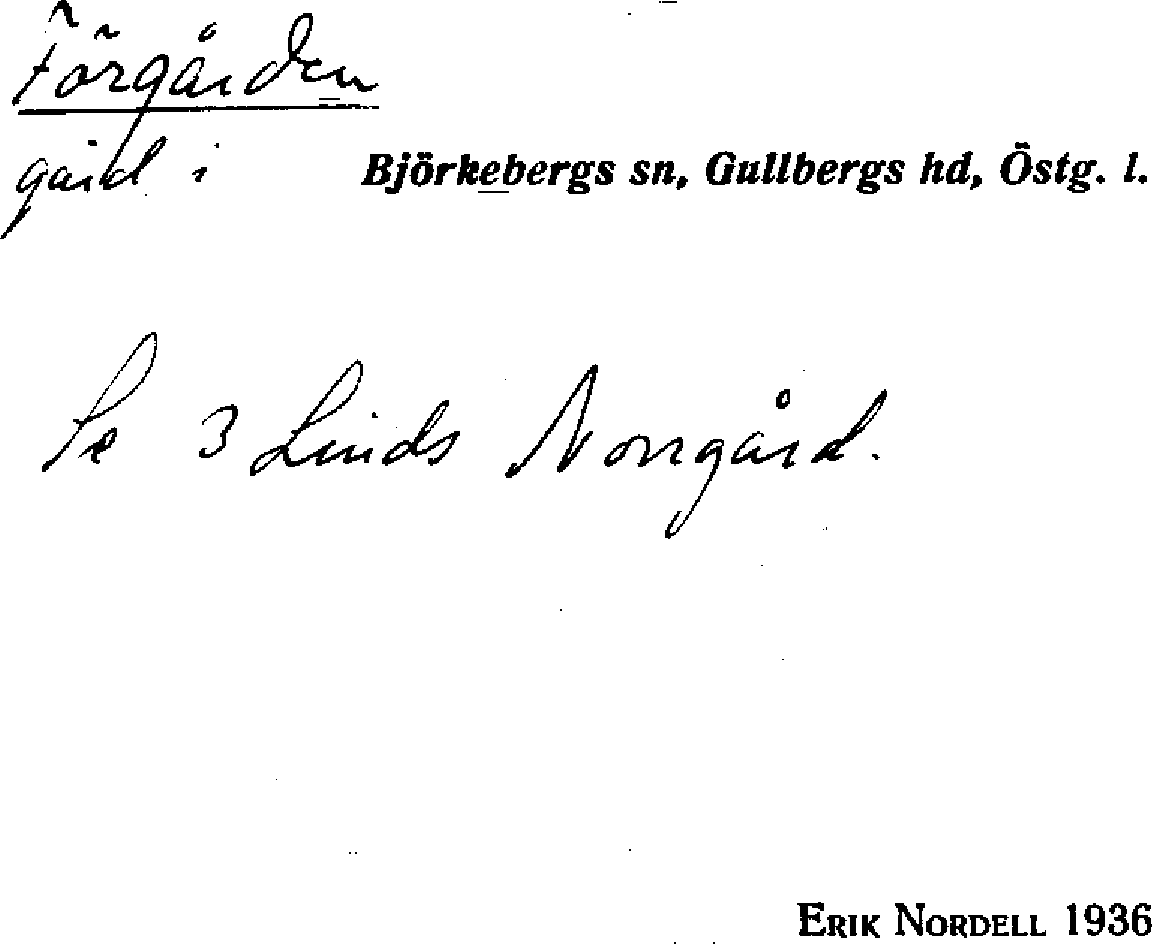 Förgården
gård i Björkebergs sn, Gullbergs hd, Östg. l.
Se 3 Linds Norrgård.
ERIK NORDELL 1936